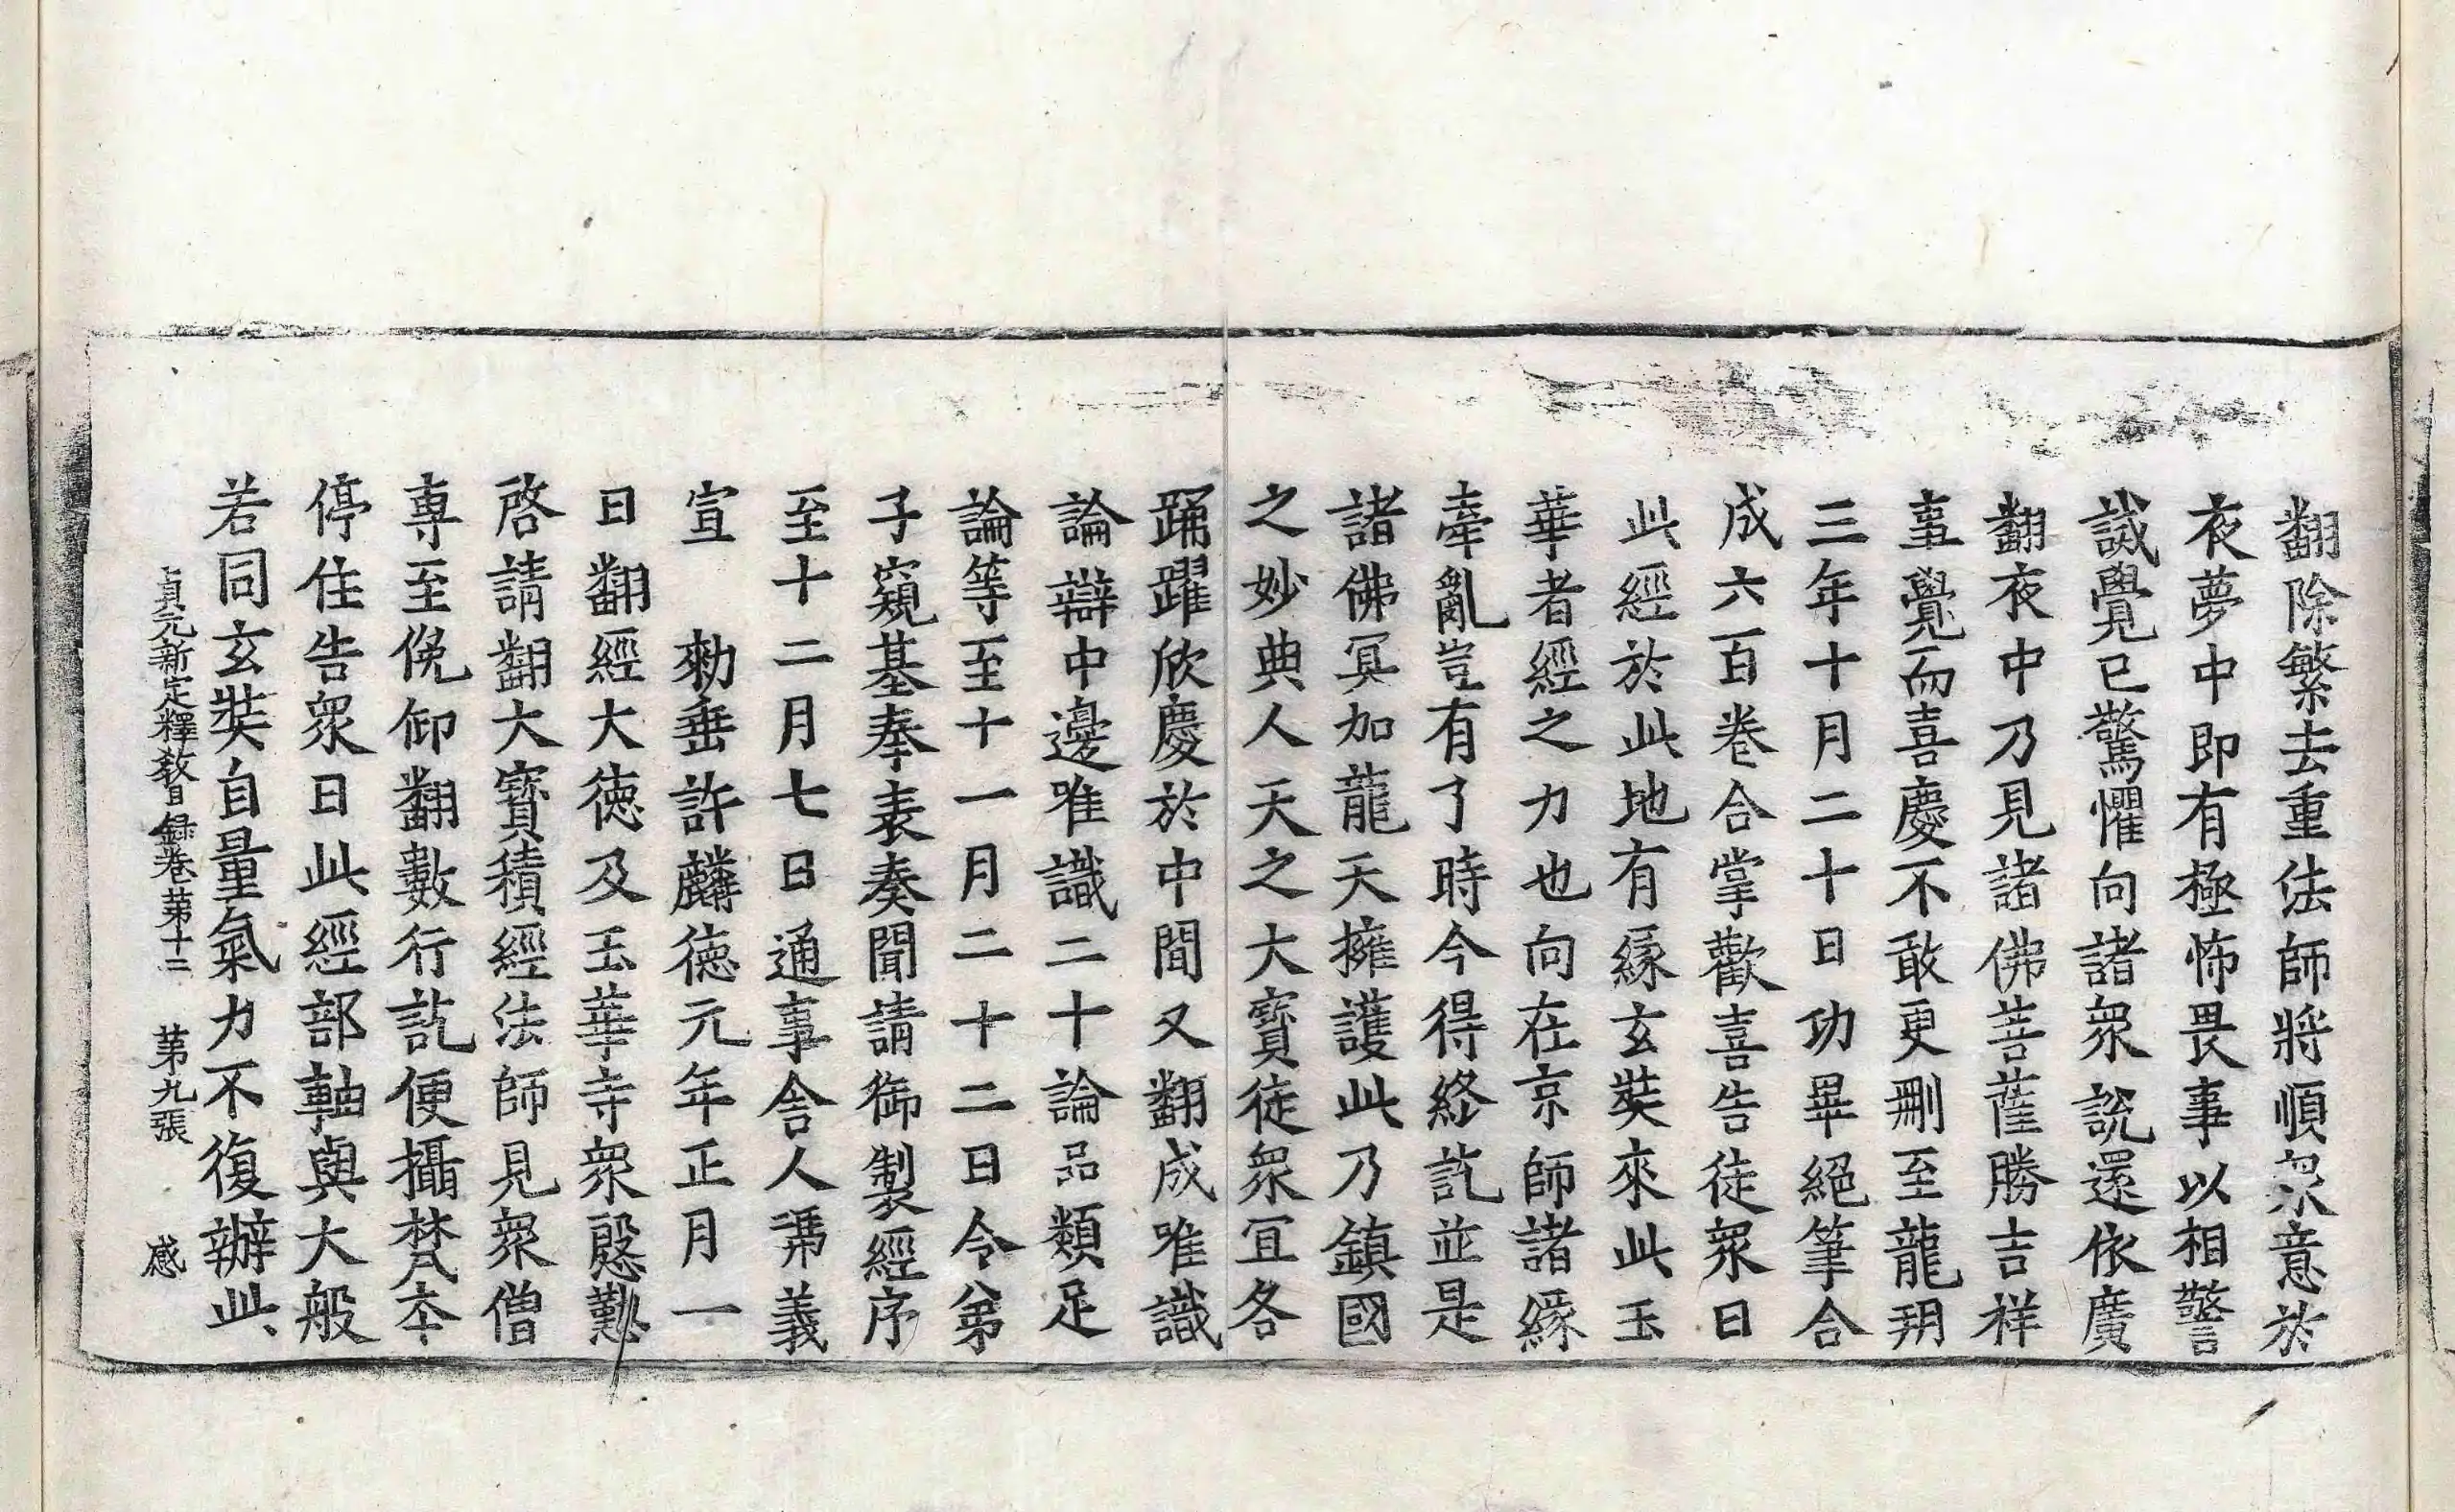 翻除繁去重法師將順衆意於
夜夢中即有極怖畏事以相警
誡覺已驚懼向諸衆說還依廣
翻夜中乃見諸佛菩薩勝吉祥
事覺而喜慶不敢更刪至龍朔
三年十月二十日功畢絕筆合
成六百卷合掌歡喜告徒衆曰
此經於此地有緣玄奘來此玉
華者經之力也向在京師諸緣
牽亂豈有了時今得終訖並是
諸佛冥加龍天擁護此乃鎮國
之妙典人天之大寶徒衆冝各
踊躍欣慶於中間又翻成唯識
論辯中邊唯識二十論品類足
論等至十一月二十二日令弟
子窺基奉表奏聞請御製經序
至十二月七日通事舍人馮義
宣　勑垂許麟德元年正月一
日翻經大德及玉華寺衆慇懃
啓請翻大寶積經法師見衆僧
專至俛仰翻數行訖便攝梵本
停住告衆曰此經部軸與大般
若同玄奘自量氣力不復辦此
貞元新定釋教目録卷第十二　第九張　感